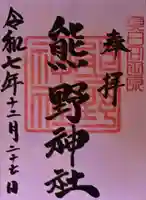 奉拝
熊野神社
令和七年十二月二十七日